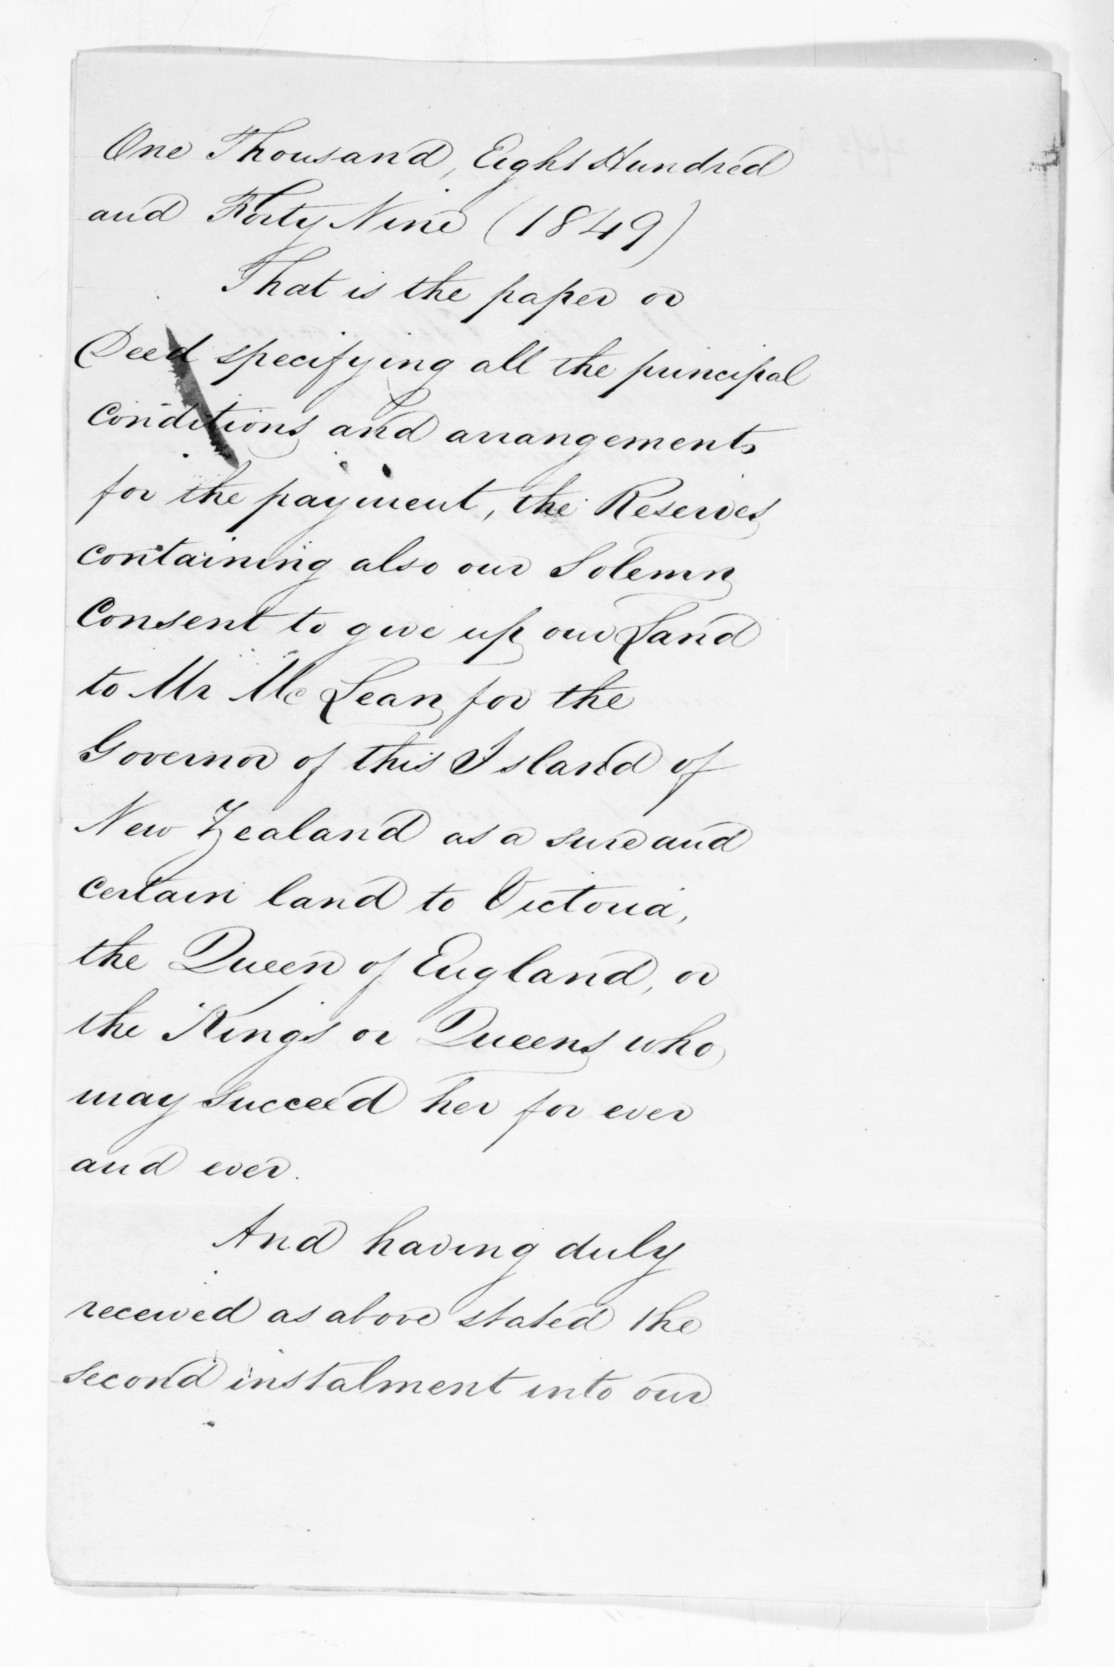 One Thousand, Eight Hundred
and Forty Nine (1849)
That is the paper or
Deed specifying all the principal
conditions and arrangements
for the payment, the Reserves
containing also our Solemn
Consent to give up our Land
to Mr McLean for the
Governor of this Island of
New Zealand as a sure and
certain land to Victoria,
the Queen of England, or
the Kings or Queens who
may succeed her for ever
and ever.
And having duly
received as above stated the
second instalment into our